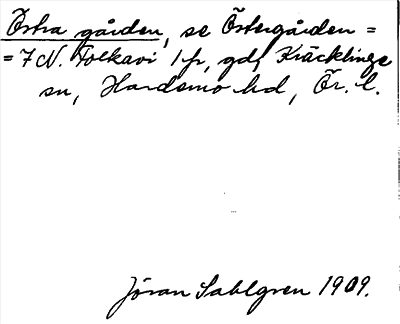 Östra gården, se Östergården =
= 7 N. Folkavi 1 fr, gd, Kräcklinge
sn, Hardemo hd, Ör. l.
Jöran Sahlgren 1909.